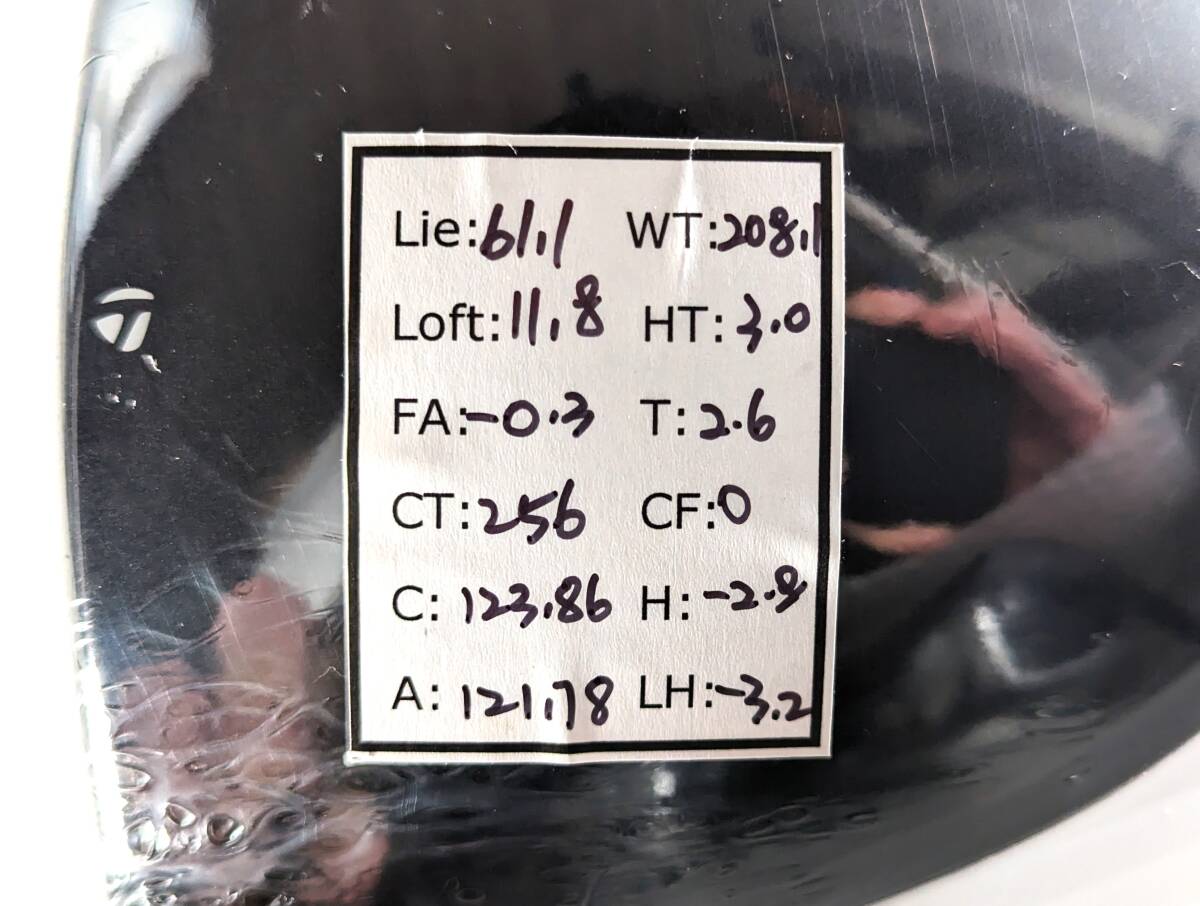 Lie:61.1 WT:208.1
Loft:11.8 HT:3.0
FA:-0.3 T:2.6
CT:256 CF:0
C: 123.86 H:-2.9
A: 121.78 LH:-3.2